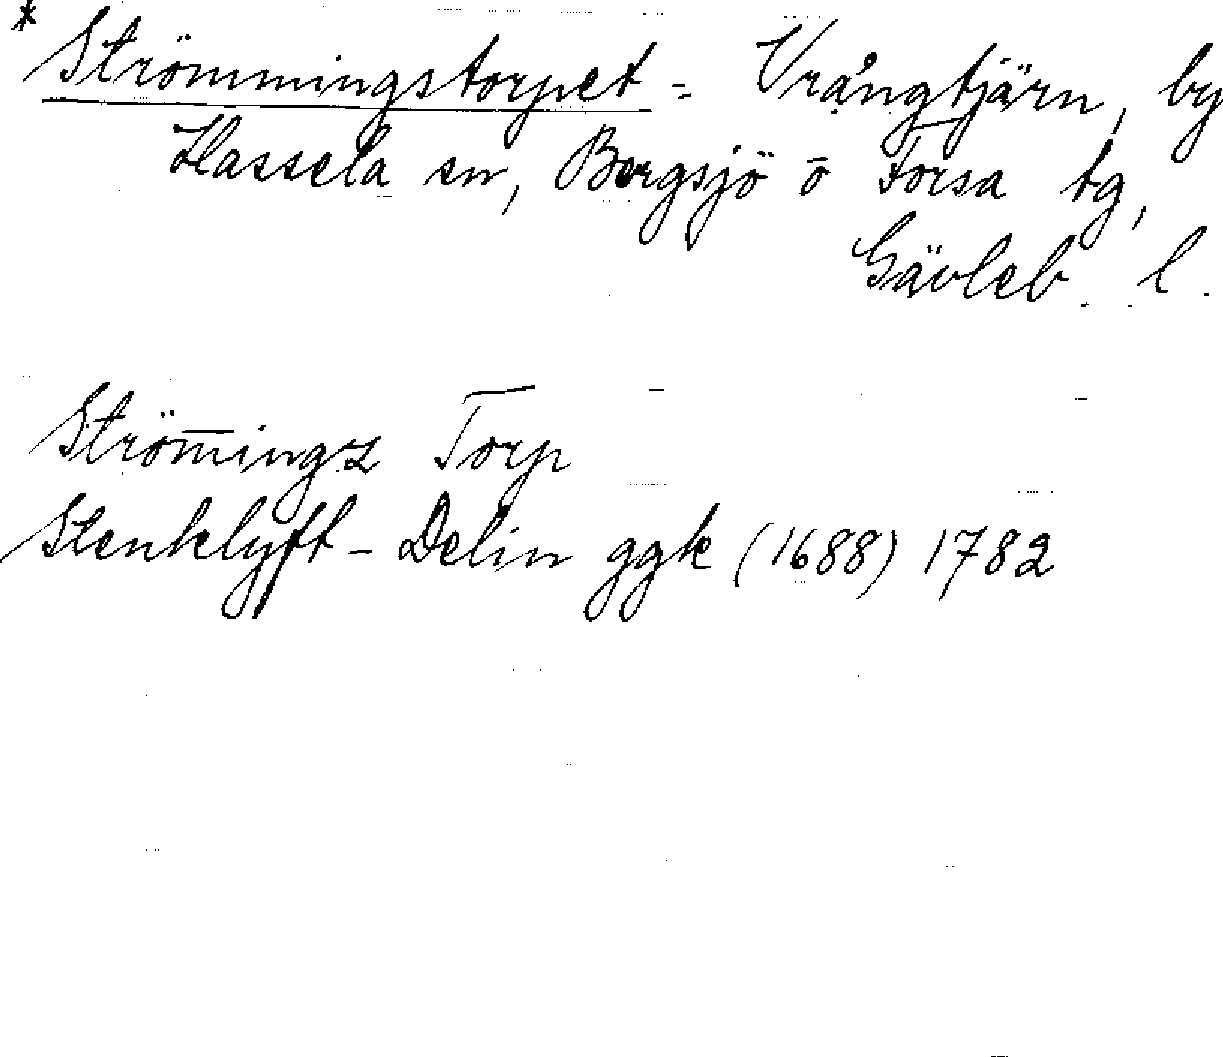 * Strömmingstorpet = Vrångtjärn, by
Hassela sn, Bergsjö o Forsa tg,
Gävleb. l.
Strömingz Torp
Stenklyft - Delin ggk (1688) 1782